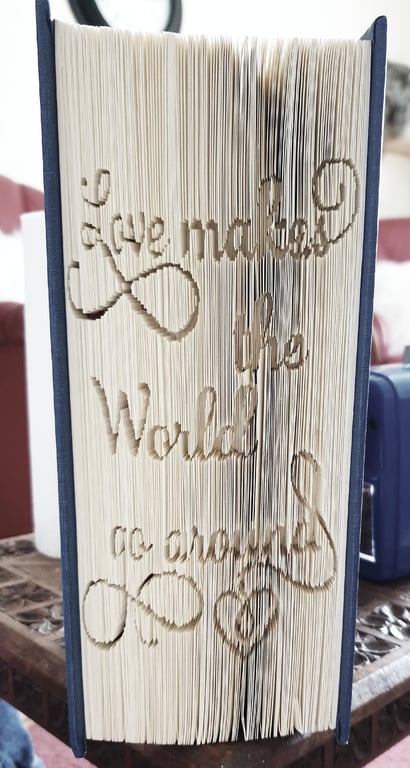 Love makes
the
World
go around